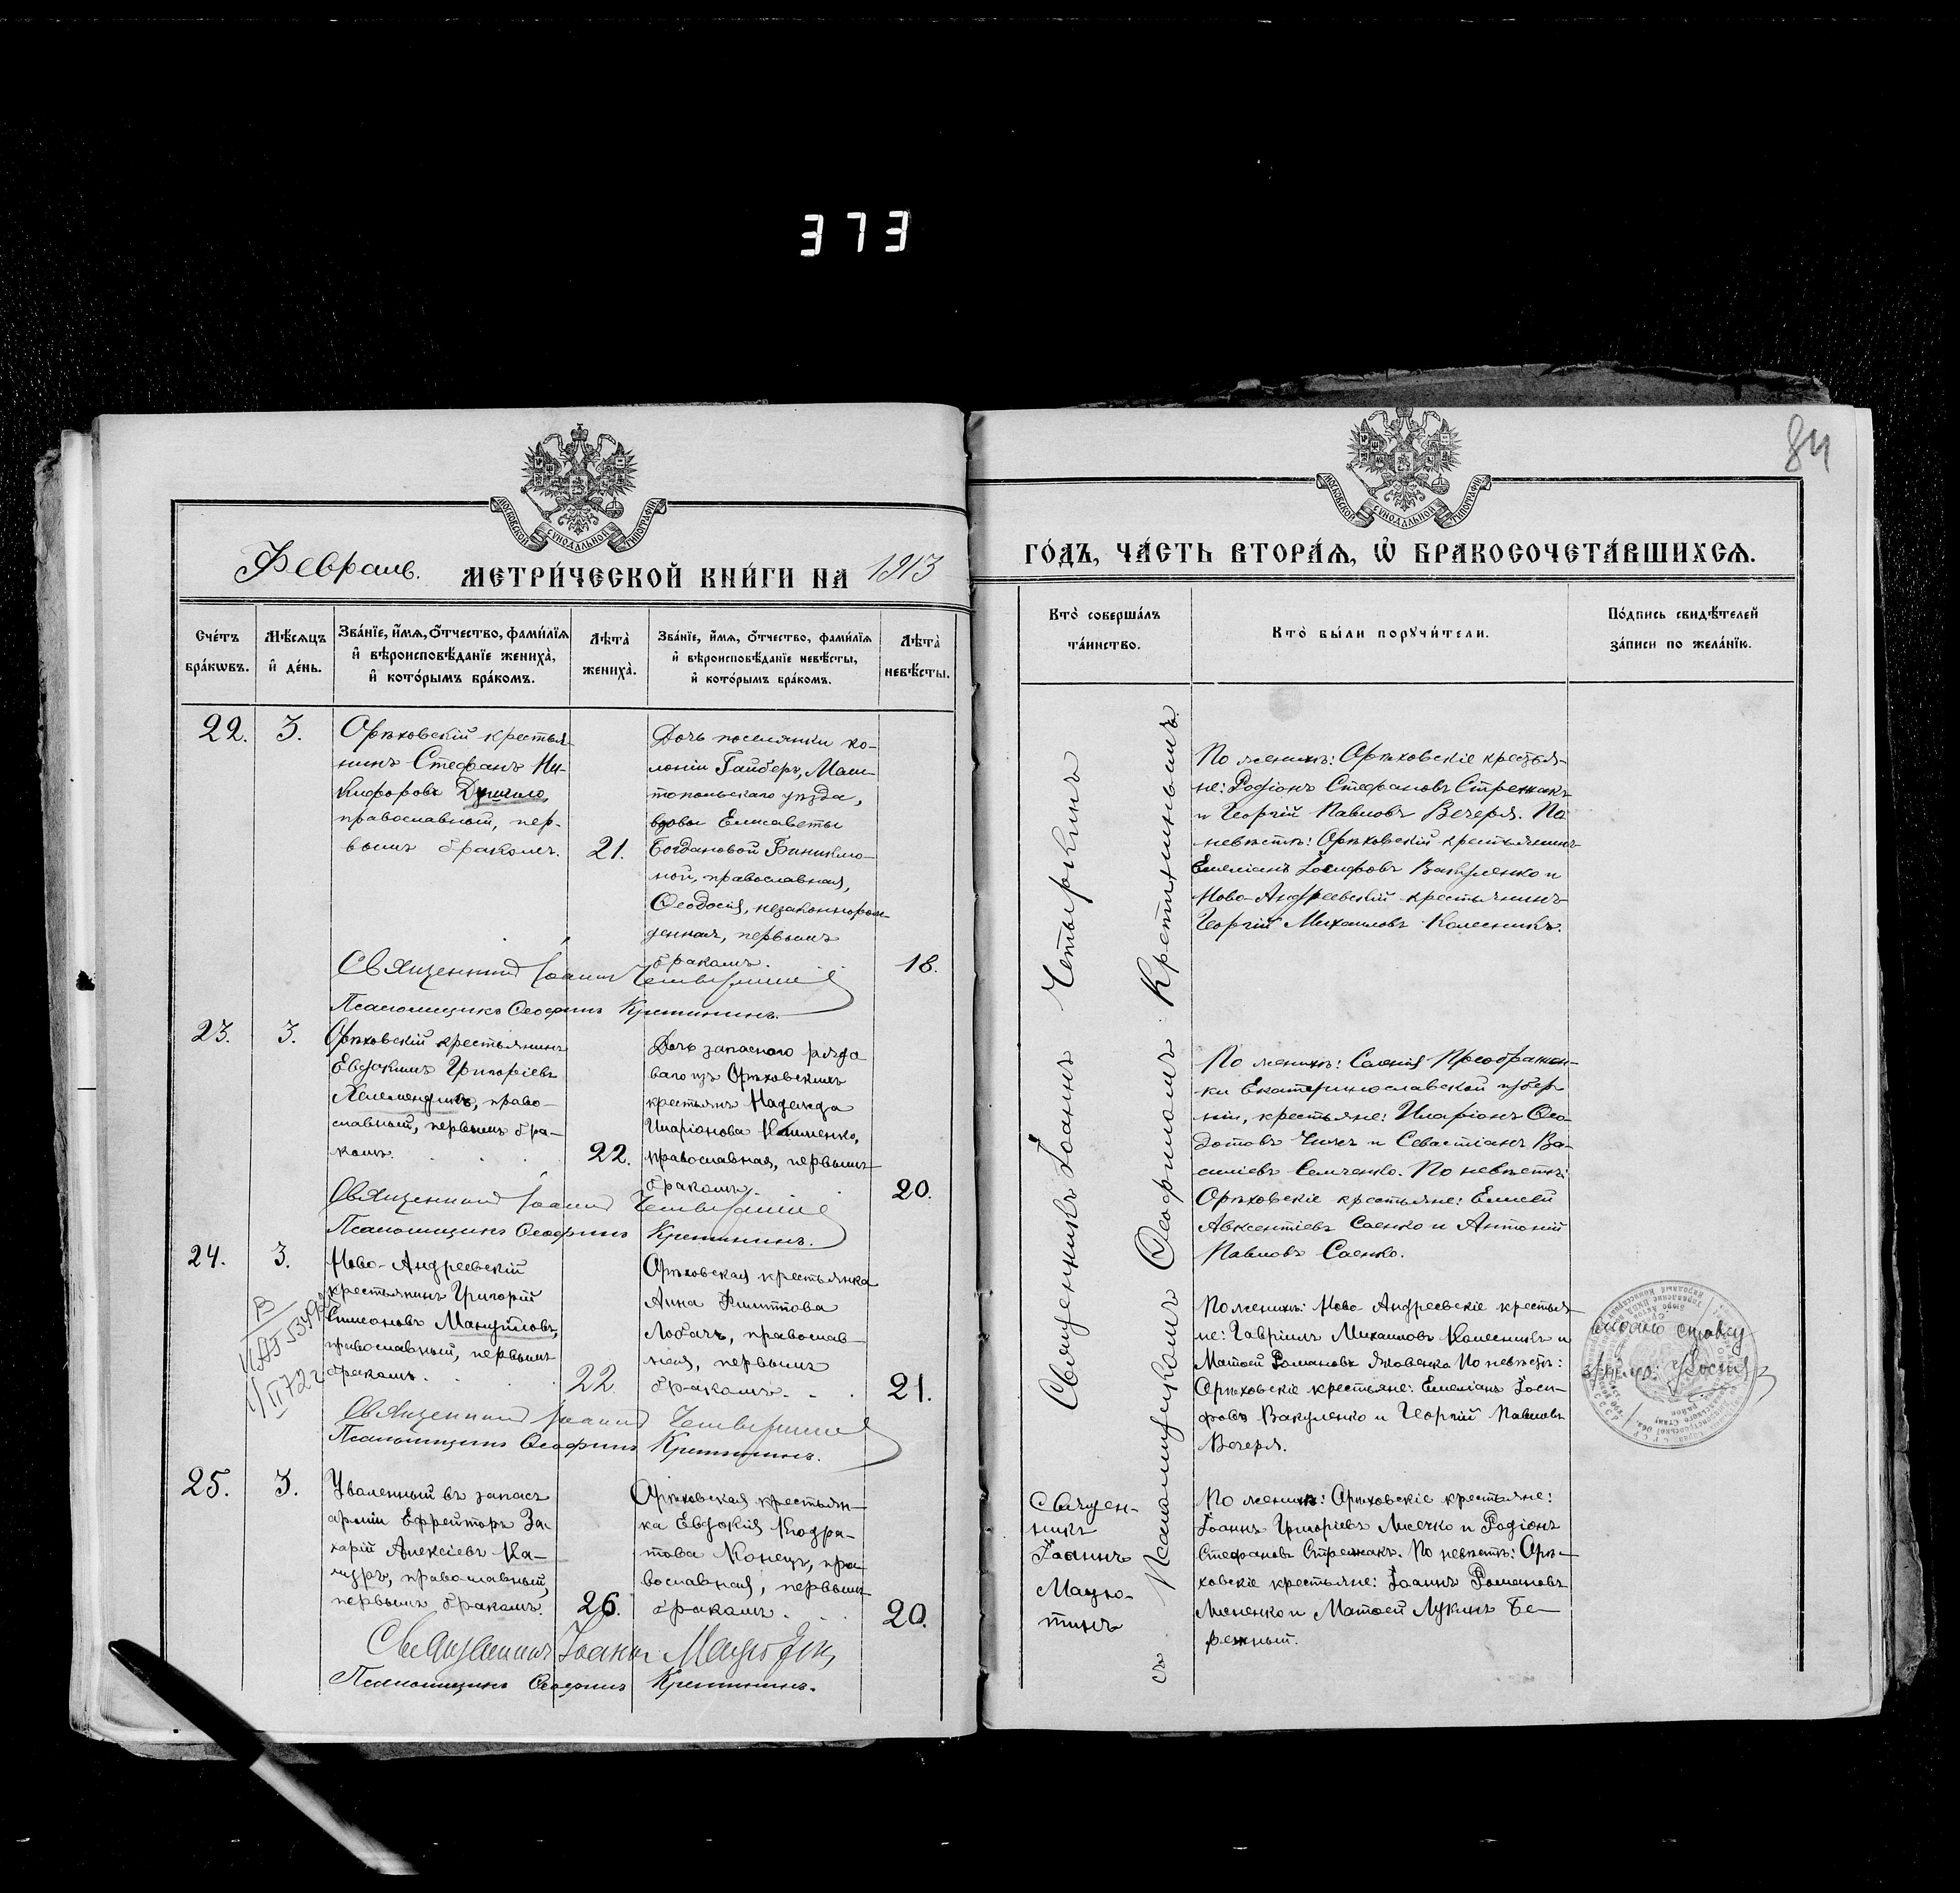 373
84
Февраль.
МЕТРИ́ЧЕСКОЙ КНИ́ГИ НА 1913
ГО́ДЪ, ЧА́СТЬ ВТОРА́Я, Ѡ БРАКОСОЧЕТА́ВШИХСЯ.
Сче́тъ бра́кѡвъ.
Мѣ́сяцъ и҆ де́нь.
Зва́нїе, и҆́мя, о҆́тчество, фами́лїя и҆ вѣроисповѣ́данїе жениха̀, и҆ кото́рымъ бра́комъ.
Лѣта̀ жениха̀.
Зва́нїе, и҆́мя, о҆́тчество, фами́лїя и҆ вѣроисповѣ́данїе невѣ́сты, и҆ кото́рымъ бра́комъ.
Лѣта̀ невѣ́сты.
Кто̀ соверша́лъ та́инство.
Кто̀ бы́ли порꙋчи́тели.
По́дпись свидѣ́телей за́писи по жела́нїю.
22.
3.
Орѣховскій крестья-
нинъ Стефанъ Ни-
кифоровъ
православный, пер-
вымъ бракомъ.
21.
Дочь поселянки ко-
лоніи Гайберъ, Мели-
топольскаго уѣзда,
вдовы Елисаветы
Богдановой
ной, православная,
Ѳеодосія, незаконнорож-
денная, первымъ
бракомъ.
18.
Священникъ Іоаннъ Четыркинъ
Псаломщикъ Ѳеофилъ Кретининъ.
23.
3.
Орѣховскій крестьянинъ
Евдокимъ Григоріевъ
право-
славный, первымъ бра-
комъ.
22.
Дочь запаснаго рядо
ваго изъ Орѣховскихъ
крестьянъ Надежда
Иларіонова
православная, первымъ
бракомъ.
20.
Священникъ Іоаннъ Четыркинъ
Псаломщикъ Ѳеофилъ Кретининъ.
24.
3.
Ново-Андреевскій
крестьянинъ Григорій
Симеоновъ Мануйловъ,
православный, первымъ
бракомъ.
22
Орѣховская крестьянка
Анна Филиппова
Лобачъ, православ-
ная, первымъ
бракомъ.
21.
Священникъ Іоаннъ Четыркинъ
Псаломщикъ Ѳеофилъ Кретининъ.
25.
3.
Уволенный въ запасъ
арміи Ефрейторъ За-
харій Алексіевъ Ка-
православный,
первымъ бракомъ.
26.
Орѣховская крестьян-
ка Евдокія Кодра-
това Конецъ, пра-
вославная, первымъ
бракомъ.
20.
Священникъ Іоаннъ Мацютинъ
Псаломщикъ Ѳеофилъ Кретининъ.
Священникъ Іоаннъ Четыркинъ
съ Псаломщикомъ Ѳеофиломъ Кретининымъ
Священ-
никъ
Іоаннъ
Мацю-
тинъ
По женихѣ: Орѣховскіе крестья-
не: Родіонъ Стефановъ Стрежакъ
и Георгій Павловъ Вечеря. По
невѣстѣ: Орѣховскій крестьянинъ
Емеліанъ Іосифовъ Вакуленко и
Ново-Андреевскій крестьянинъ
Георгій Михаиловъ Колесникъ.
По женихѣ: Селенія Преображен-
ки Екатеринославской губер
ніи, крестьяне: Иларіонъ Ѳео-
дотовъ и Севастіанъ Ва-
силіевъ Семченко. По невѣстѣ:
Орѣховскіе крестьяне: Елисей
Авксентіевъ Саенко и Антоній
Павловъ Саенко.
По женихѣ: Ново-Андреевскіе крестья-
не: Гавріилъ Михаиловъ Колесникъ и
Матѳей Романовъ Яковенко По невѣстѣ:
Орѣховскіе крестьяне: Емеліанъ Іоси-
фовъ Вакуленко и Георгій Павловъ
Вечеря.
По женихѣ: Орѣховскіе крестьяне:
Іоаннъ Григоріевъ Лисечко и Родіонъ
Стефановъ Стрежакъ. По невѣстѣ: Орѣ-
ховскіе крестьяне: Іоаннъ Романовъ
Мененко и Матѳей Лукинъ Бе-
режный.